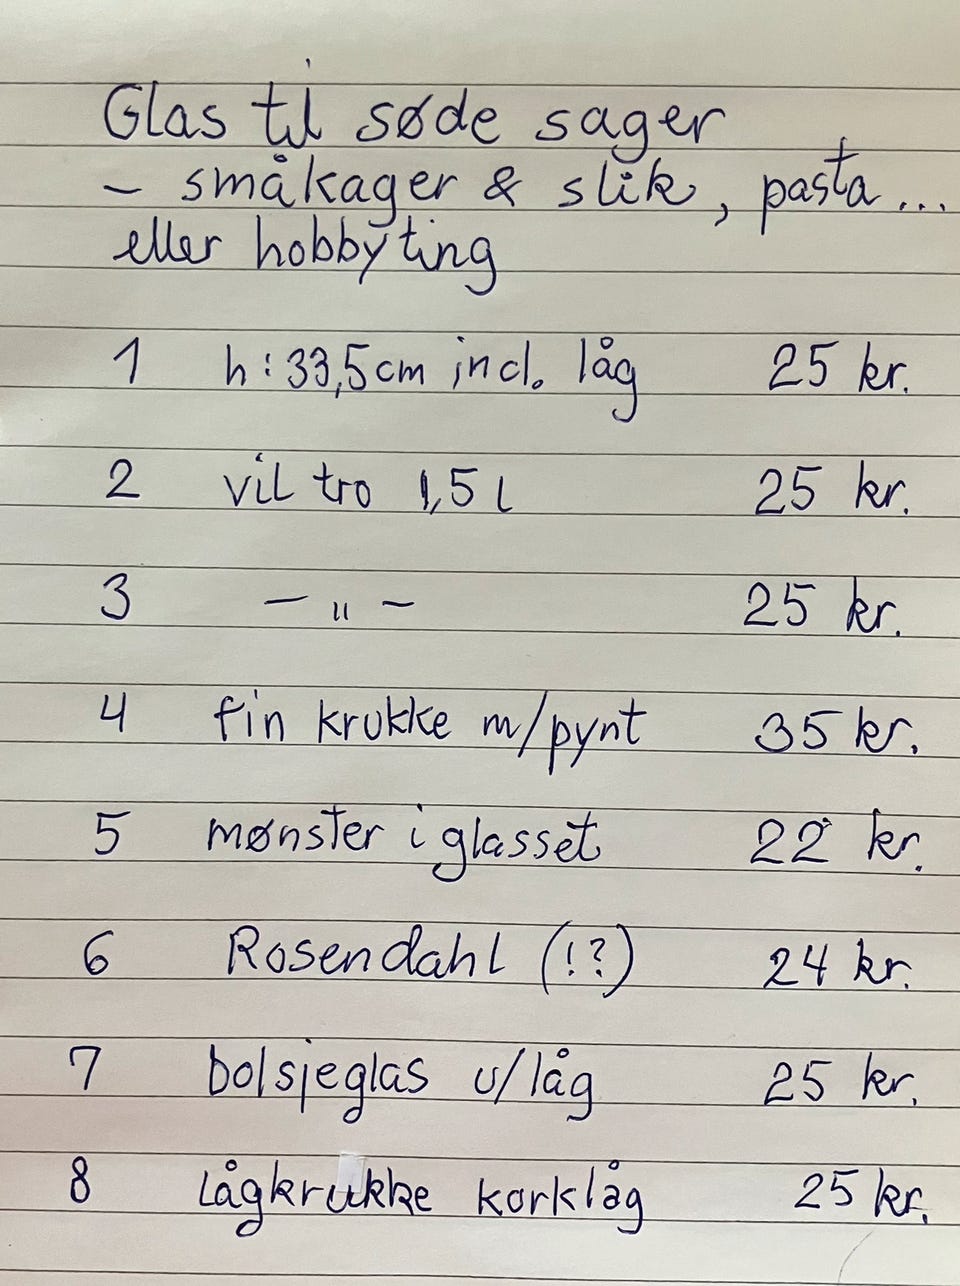 Glas til søde sager
- småkager & slik, pasta...
eller hobbyting
1 h: 33,5 cm incl. låg 25 kr.
2 vil tro 1,5 l 25 kr.
3 - " - 25 kr.
4 fin krukke m/pynt 35 kr.
5 mønster i glasset 22 kr.
6 Rosendahl (!?) 24 kr.
7 bolsjeglas u/låg 25 kr.
8 Lågkrukke korklåg 25 kr.